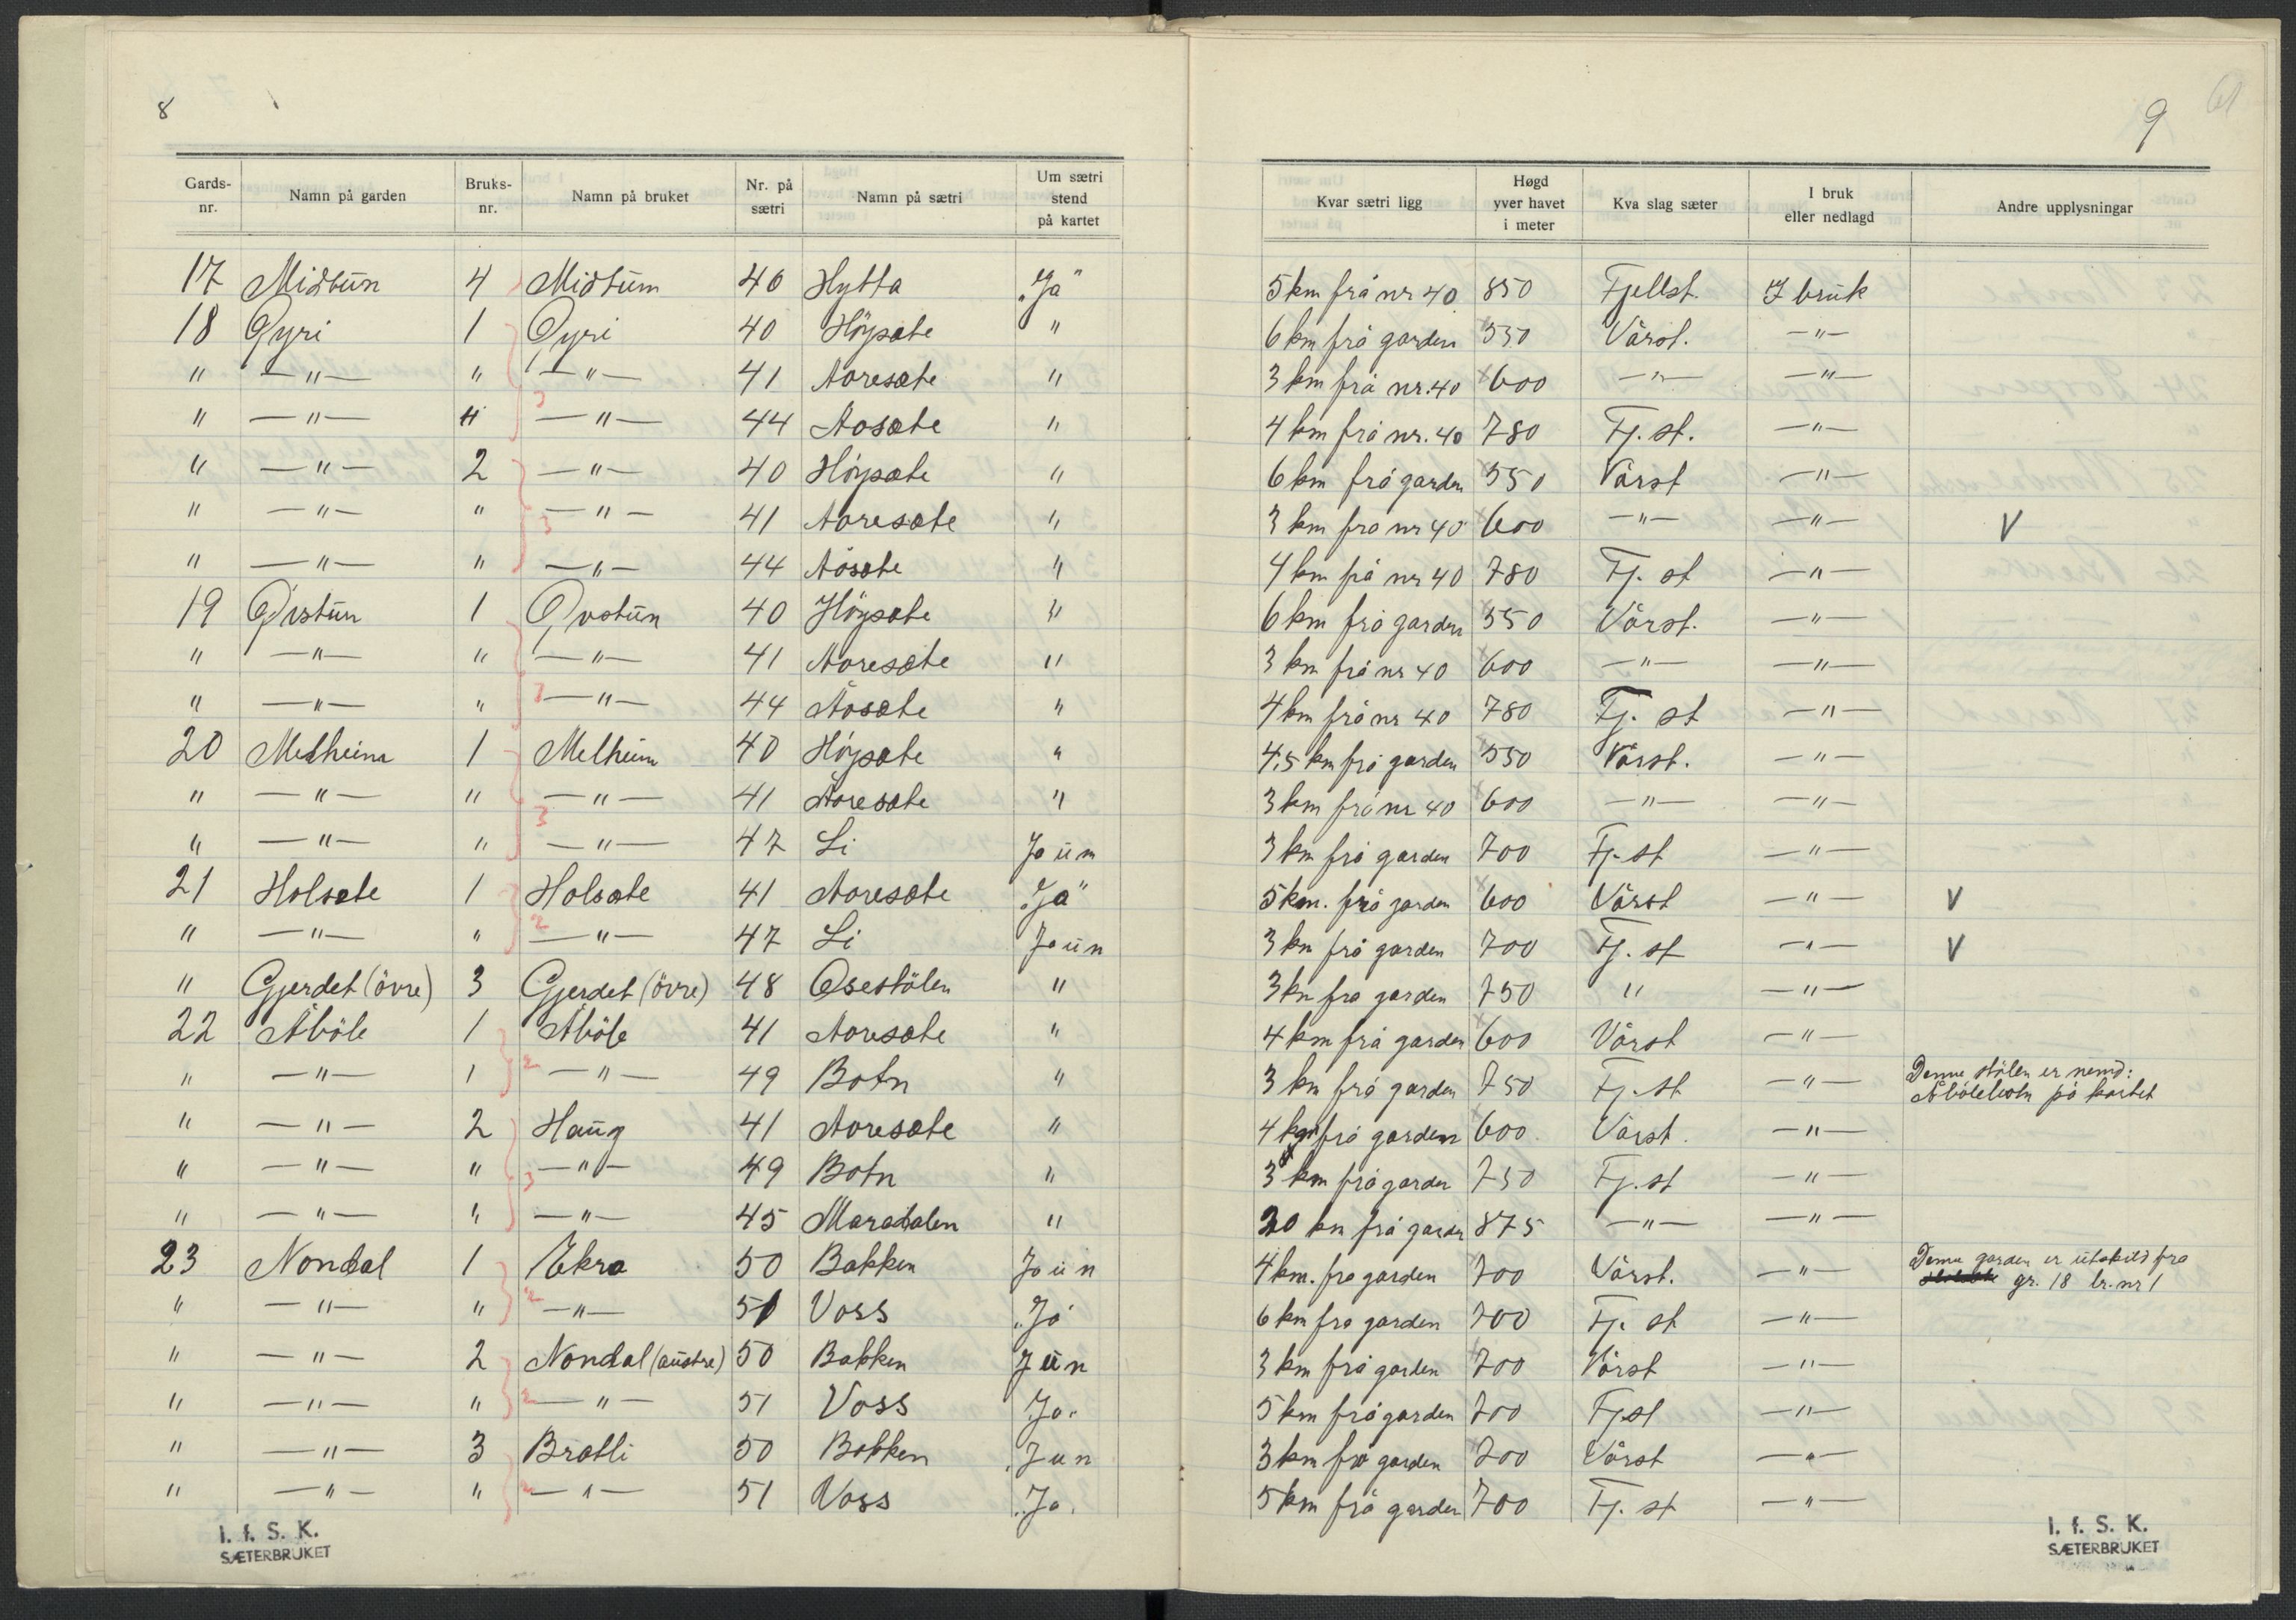 8
Gards-nr. | Namn på garden | Bruks-nr. | Namn på bruket | Nr. på sætri | Namn på sætri | Um sætri stend på kartet
17 | Midtun | 4 | Midtum | 46 | Hytta | „Ja"
18 | Øyri | 1 | Øyri | 40 | Höysæte | "
" | —"— | " | —"— | 41 | Aaresæte | "
" | —"— | " | —"— | 44 | Aasæte | "
" | —"— | 2 | —"— | 40 | Höysæte | "
" | —"— | " | —"— | 41 | Aaresæte | "
" | —"— | " | —"— | 44 | Aåsæte | "
19 | Øvstun | 1 | Øvstun | 40 | Höysæte | "
" | —"— | " | —"— | 41 | Aaresæte | "
" | —"— | " | —"— | 44 | Åosæte | "
20 | Melheim | 1 | Melheim | 40 | Höysæte | "
" | —"— | " | —"— | 41 | Aaresæte | "
" | —"— | " | —"— | 47 | Li | Ja ün
21 | Holsæte | 1 | Holsæte | 41 | Aaresæte | „Ja"
" | —"— | " | —"— | 47 | Li | Ja ün
" | Gjerdet (övre) | 3 | Gjerdet (övre) | 48 | Osestölen | "
22 | Åböle | 1 | Åböle | 41 | Aaresæte | "
" | —"— | 1 | —"— | 49 | Botn | "
" | —"— | 2 | Haug | 41 | Aaresæte | "
" | —"— | " | —"— | 49 | Botn | "
" | —"— | " | —"— | 45 | Maradalen | "
23 | Nondal | 1 | Ekra | 50 | Bakken | Ja ün
" | —"— | " | —"— | 51 | Voss | „Ja
" | —"— | 2 | Nondal (austre) | 50 | Bakken | J ün
" | —"— | " | —"— | 51 | Voss | „Ja"
" | —"— | 3 | Bratli | 50 | Bakken | J ün
" | —"— | " | —"— | 51 | Voss | „Ja
I. f. S. K.
SÆTERBRUKET
9
61
Kvar sætri ligg | Høgd yver havet i meter | Kva slag sæter | I bruk eller nedlagd | Andre upplysningar
5 km frå nr 40 | 850 | Fjellst. | I bruk
6 km frå garden | 550 | Vårst. | —"—
3 km frå nr. 40 | 600 | —"— | —"—
4 km frå nr. 40 | 780 | Fj. st. | —"—
6 km frå garden | 550 | Vårst | —"—
3 km fra nr 40 | 600 | —"— | —"— | V
4 km frå nr 40 | 780 | Fj. st | —"—
6 km frå garden | 550 | Vårst. | —"—
3 km frå nr 40 | 600 | —"— | —"—
4 km frå nr 40 | 780 | Fj. st | —"—
4,5 km frå garden | 550 | Vårst. | —"—
3 km frå nr 40 | 600 | —"— | —"—
3 km frå garden | 700 | Fj. st | —"—
5 km. frå garden | 600 | Vårst | —"— | V
3 km frå garden | 700 | Fj. st | —"— | V
3 km fra garden | 750 | " | —"—
4 km frå garden | 600 | Vårst | —"—
3 km frå garden | 750 | Fj. st | —"— | Denne stölen er nemd: Åbölebotn på kartet
4 km frå garden | 600 | Vårst. | —"—
3 km frå garden | 750 | Fj. st | —"—
20 km frå garden | 875 | —"— | —"—
4 km. fra garden | 700 | Vårst. | —"— | Denne garden er utskild fra gr. 18 br. nr 1
6 km fra garden | 700 | Fj. st | —"—
3 km frå garden | 700 | Vårst | —"—
5 km frå garden | 700 | Fj. st | —"—
3 km frå garden | 700 | Vårst | —"—
5 km frå garden | 700 | Fj. st | —"—
I. f. S. K.
SÆTERBRUKET